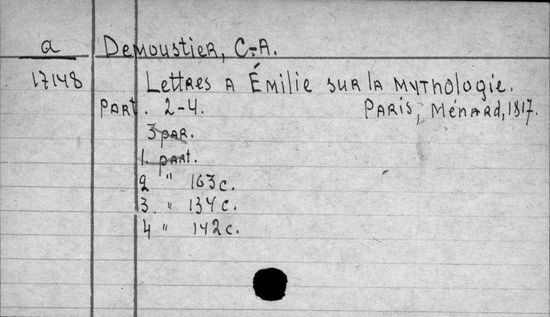 a Demoustier, C.-A.
17148 Lettres a Émilie sur la mythologie.
Part. 2-4. Paris, Ménard, 1817.
3 par.
1. part.
2 " 163 c.
3. " 134 c.
4 " 142 c.